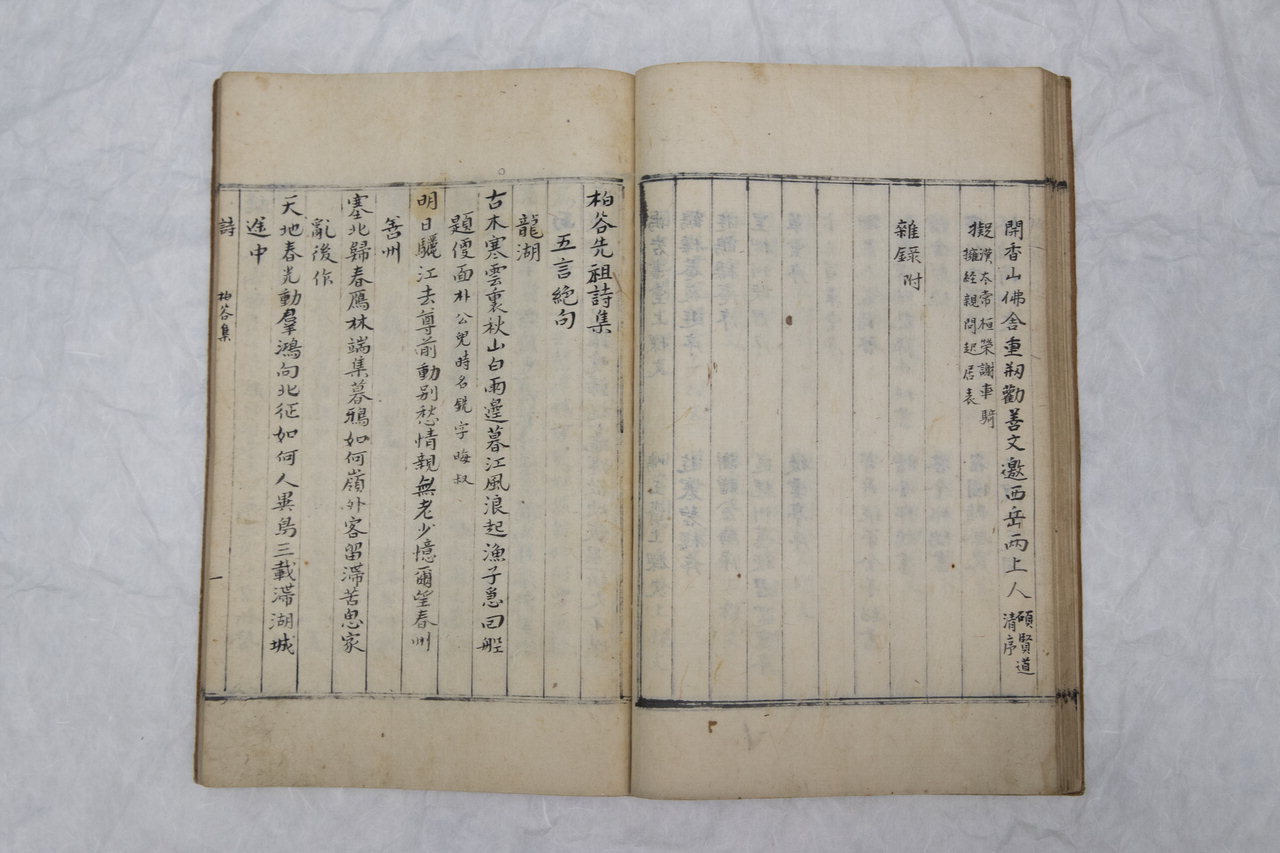 開香山佛舍重刱勸善文邀西岳兩上人碩賢道清序
擬漢太常桓榮謝車騎
擁經親問起居表
雜錄附
柏谷先祖詩集
五言絕句
龍湖
古木寒雲裏秋山白雨邊暮江風浪起漁子急回船
題便面朴公兒時名銑字晦叔
明日驪江去尊前動别愁情親無老少憶爾望春州
善州
塞北歸春鴈林端集暮鴉如何嶺外客留滯苦思家
亂後作
天地春光動羣鴻向北征如何人異鳥三載滯湖城
途中
詩 柏谷集 一